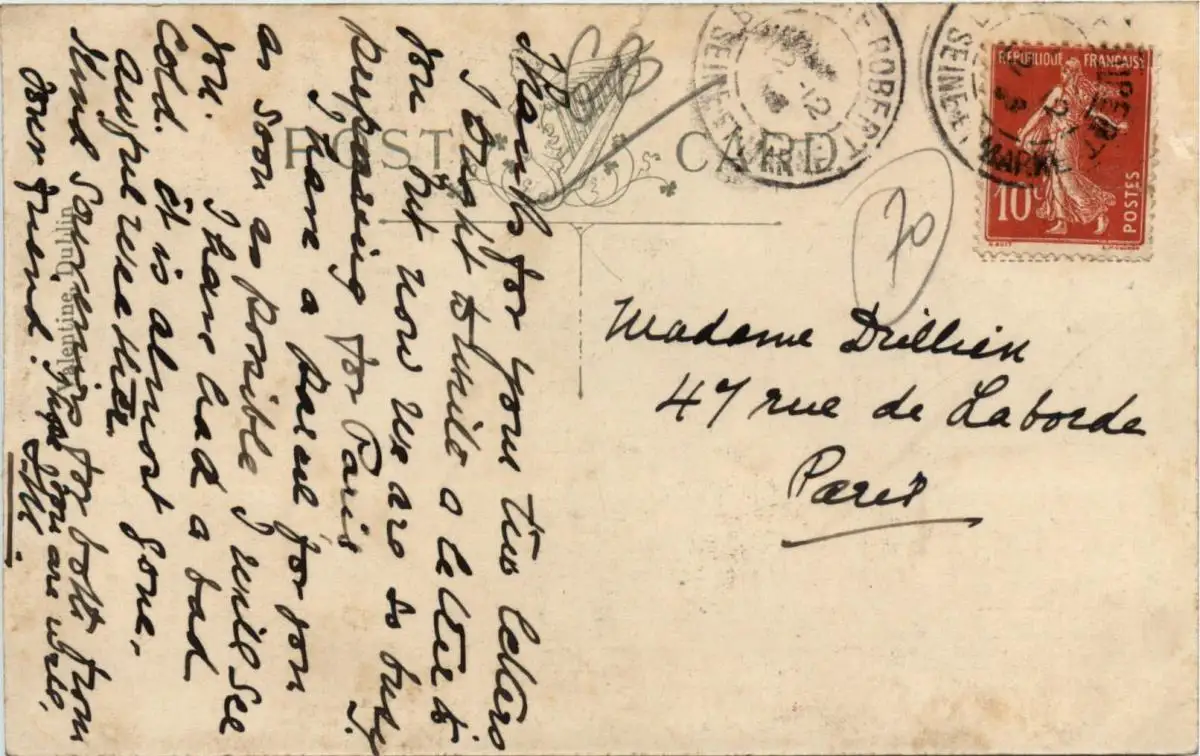 POST CARD
BRIE COMTE ROBERT
SEINE-ET-MARNE
SEINE-ET-MARNE
RÉPUBLIQUE FRANÇAISE
10c
POSTES
70
Thanks for your two letters
I ought to write a letter to
you but now we are so busy
preparing for Paris.
I have a parcel for you
as soon as possible I will see
you. I have had a bad
cold. It is almost gone,
awful weather.
Kind Souvenirs for both from
your friend. I hope you are well,
Valentine, Dublin
Madame Drillien
47 rue de Laborde
Paris